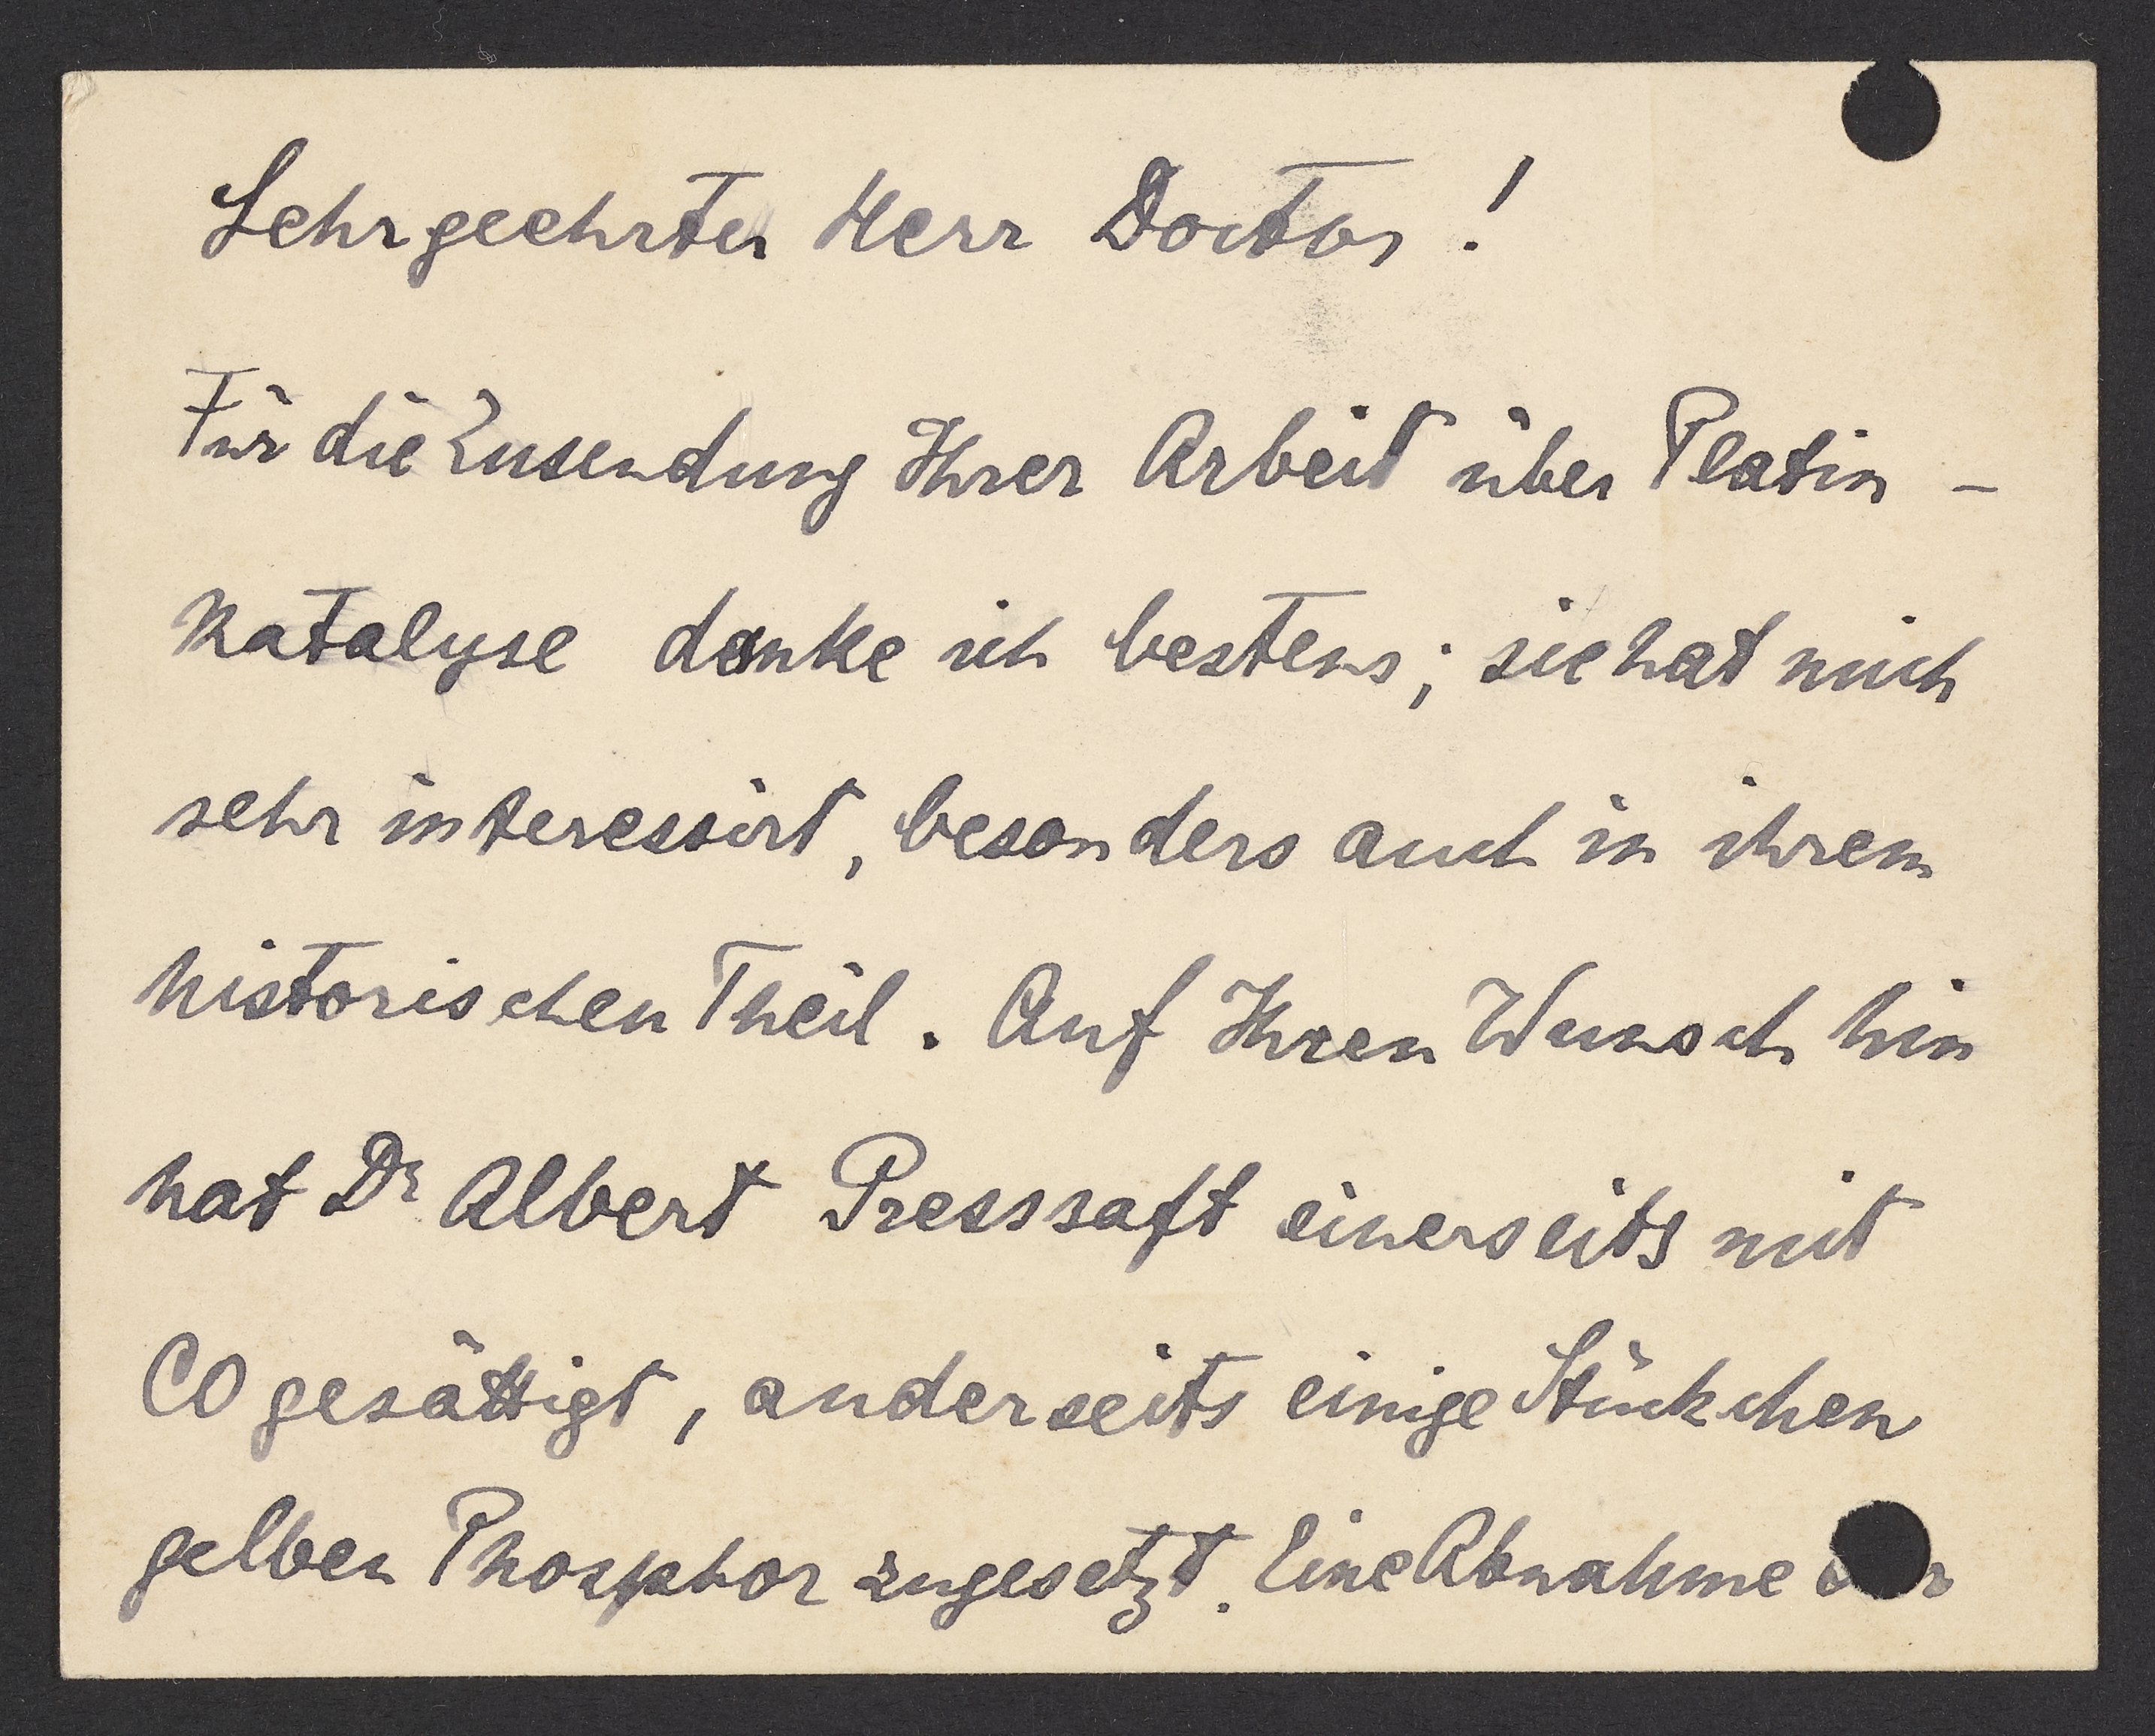 Sehr geehrter Herr Doctor!
Für die Zusendung Ihrer Arbeit über Platin -
Katalyse danke ich bestens; sie hat mich
sehr interessirt, besonders auch in ihrem
historischen Theil. Auf Ihren Wunsch hin
hat Dr Albert Presssaft einerseits mit
CO gesättigt, anderseits einige Stückchen
gelben Phosphor zugesetzt. Eine Abnahme